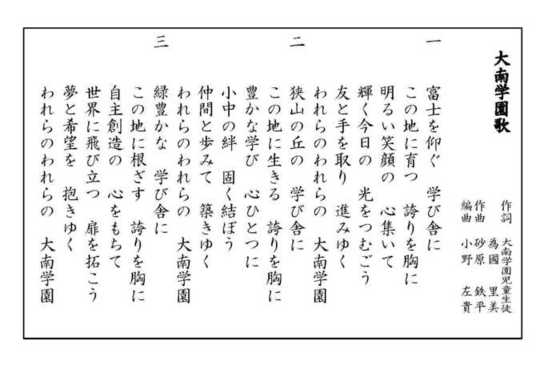 大南学園歌
作詞 大南学園児童生徒
為國 里美
作曲 砂原 鉄平
編曲 小野 左貴
一
富士を仰ぐ 学び舎に
この地に育つ 誇りを胸に
明るい笑顔の 心集いて
輝く今日の 光をつむごう
友と手を取り 進みゆく
われらのわれらの 大南学園
二
狭山の丘の 学び舎に
この地に生きる 誇りを胸に
豊かな学び 心ひとつに
小中の絆 固く結ぼう
仲間と歩みて 築きゆく
われらのわれらの 大南学園
三
緑豊かな 学び舎に
この地に根ざす 誇りを胸に
自主創造の 心をもちて
世界に飛び立つ 扉を拓こう
夢と希望を 抱きゆく
われらのわれらの 大南学園